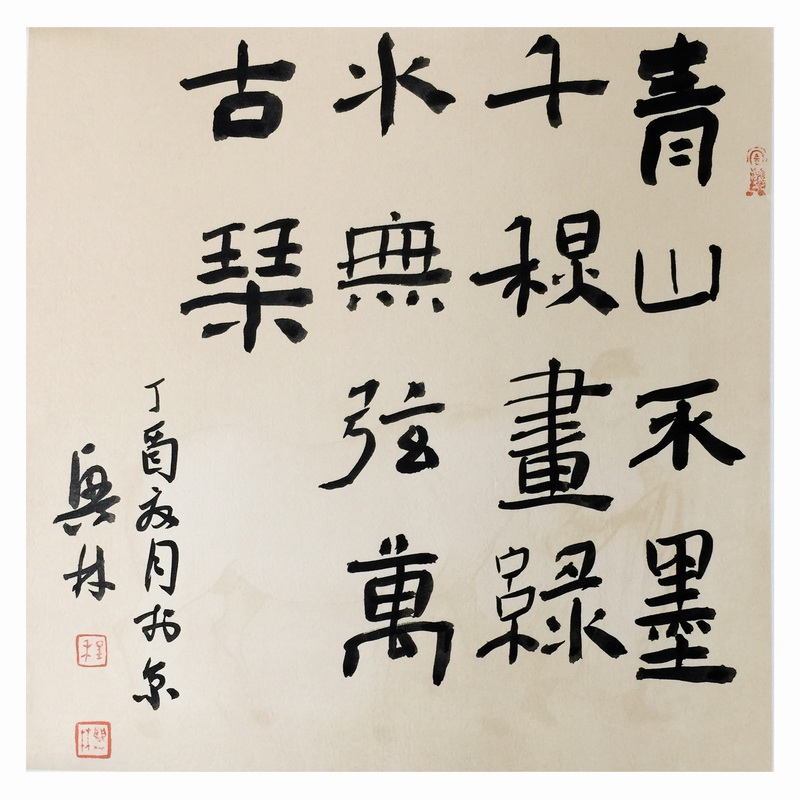 青山不墨
千秋畫綠
水無弦萬
古琹
丁酉夏月於京
興林
程